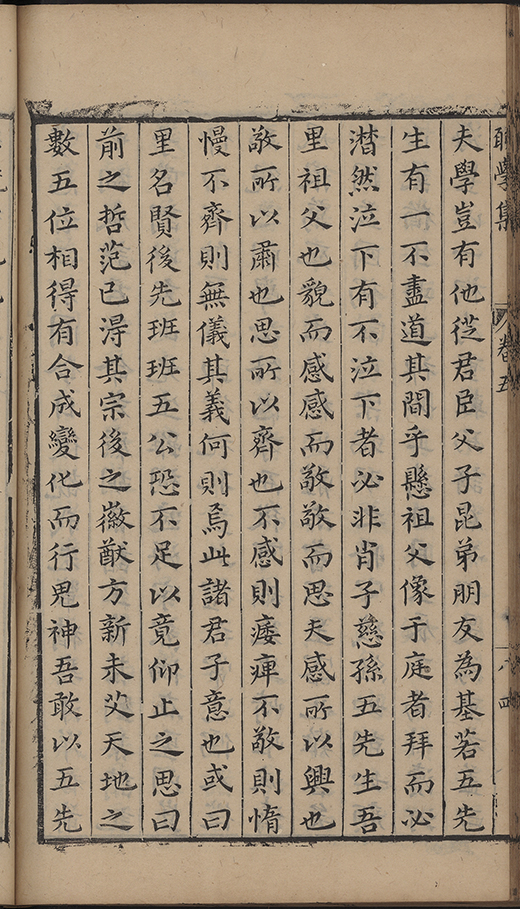 耶學集 卷五 八四
夫學豈有他從君臣父子昆弟朋友為基若五先
生有一不盡道其間乎懸祖父像于庭者拜而必
潸然泣下有不泣下者必非肖子慈孫五先生吾
里祖父也貌而感感而敬敬而思夫感所以興也
敬所以肅也思所以齊也不感則痿痺不敬則惰
慢不齊則無儀其義何則焉此諸君子意也或曰
里名賢後先班班五公恐不足以竟仰止之思曰
前之哲范已淂其宗後之徽猷方新未艾天地之
數五位相得有合成變化而行鬼神吾敢以五先